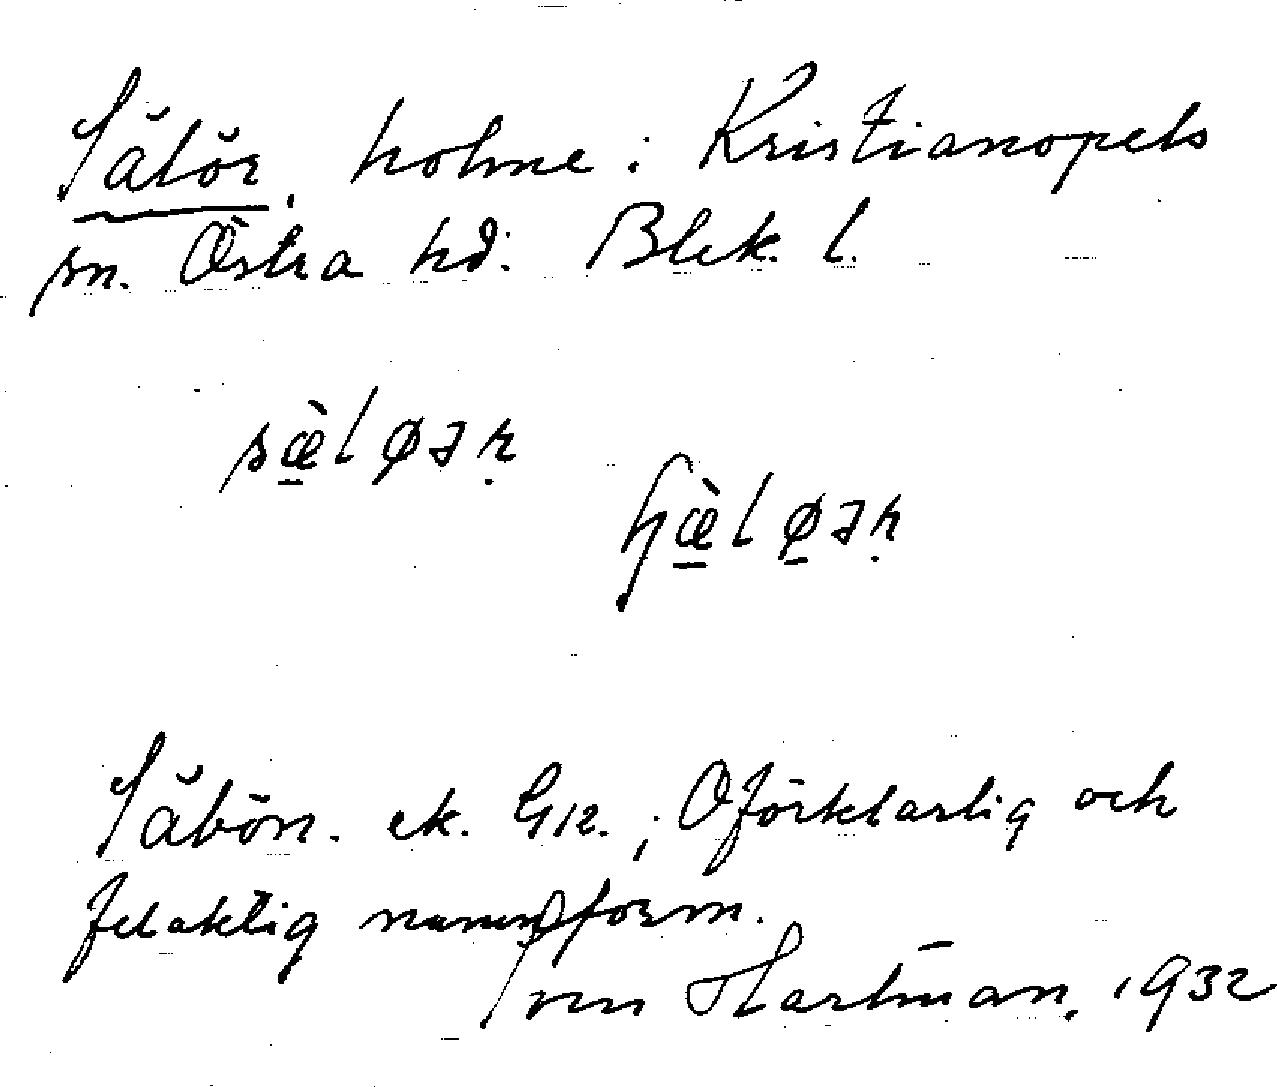 Sälör, holme i Kristianopels
sn. Östra hd. Blek. l.
sæ̀løər
hæ̀løər
Säbön. ek. G12. ; Oförklarlig och
felaktig namnform.
Sven Hartman, 1932